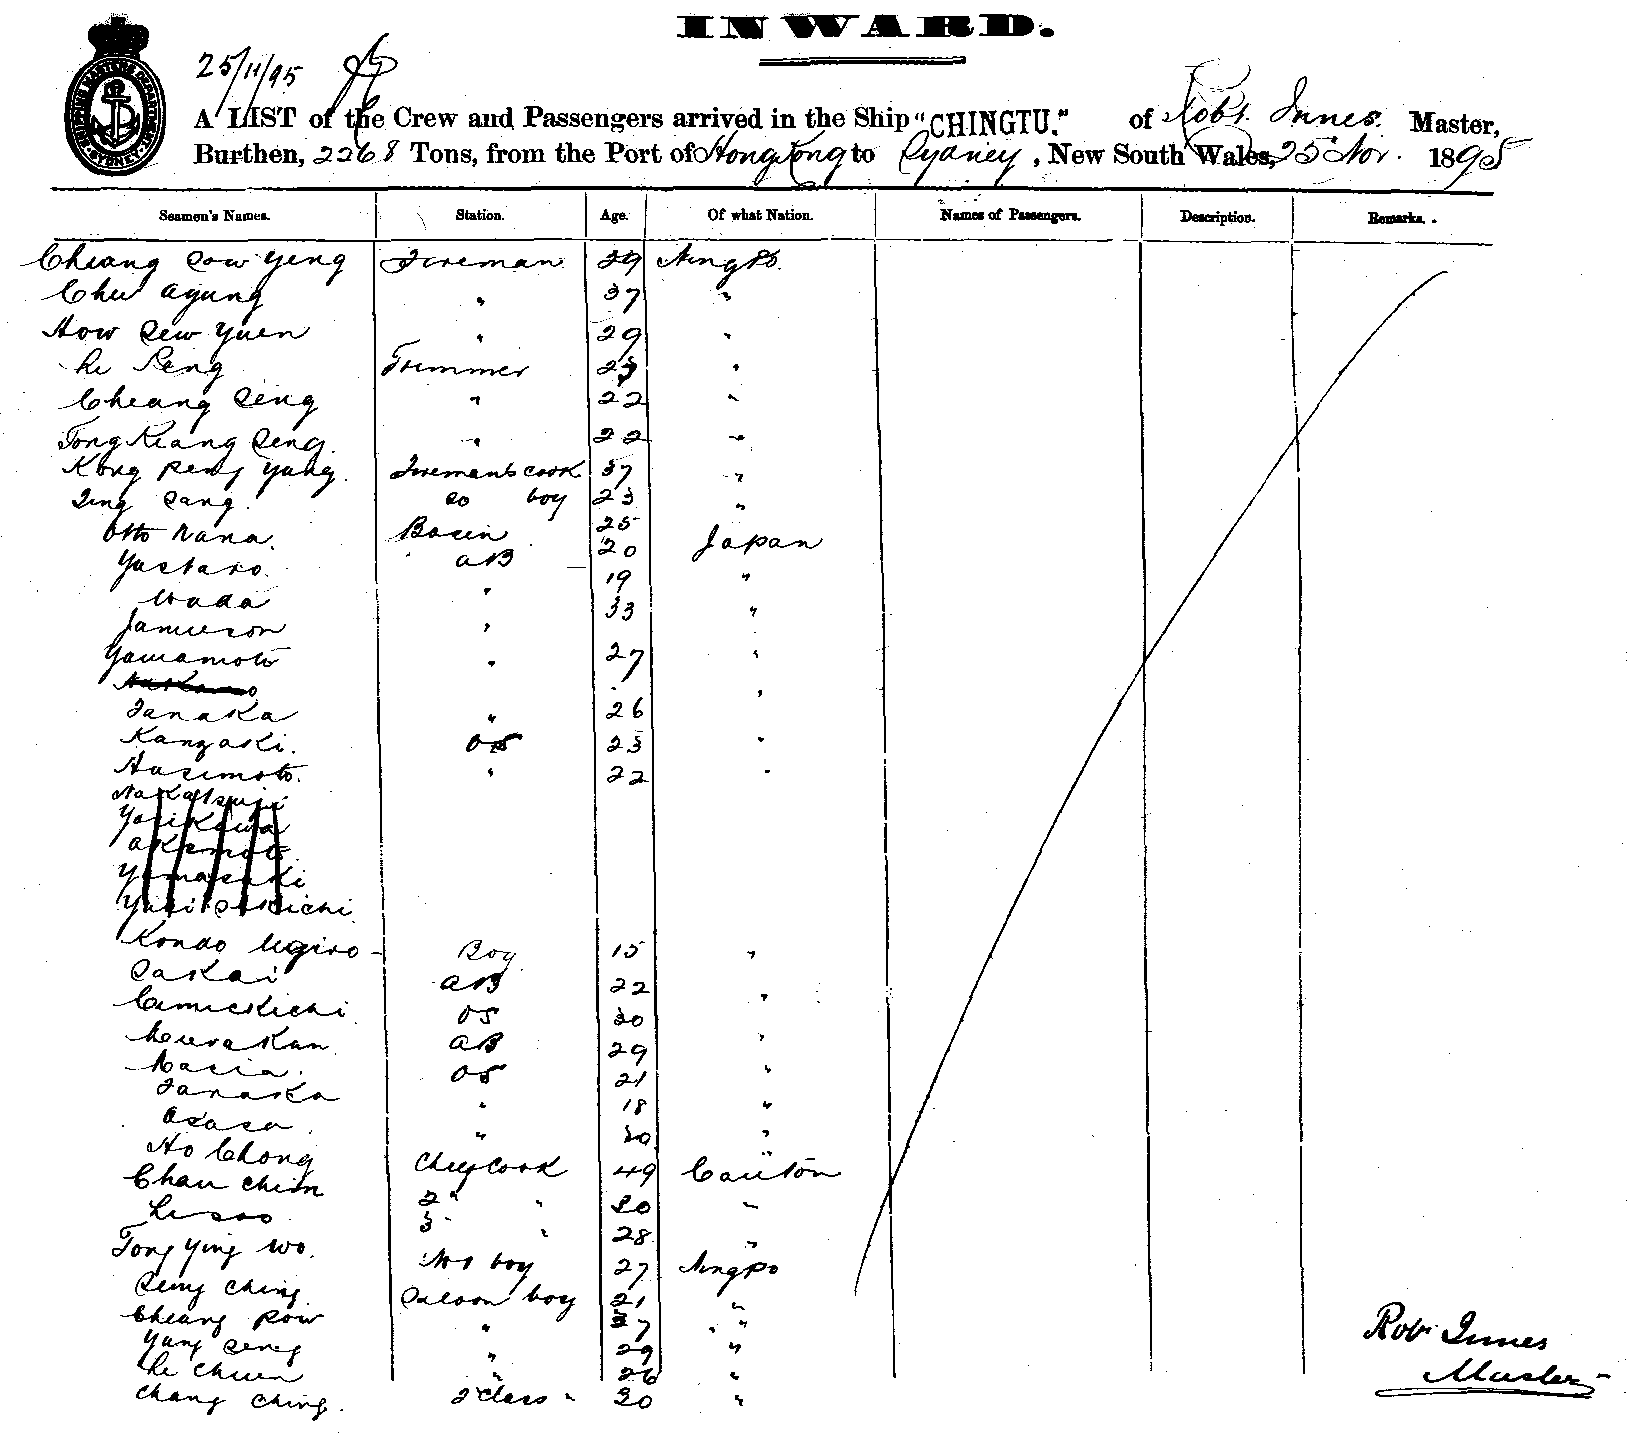 INWARD.
SHIPPING MASTERS DEPARTMENT
SYDNEY
25/11/95
A LIST of the Crew and Passengers arrived in the Ship "CHINGTU." of Robt. Innes. Master,
Burthen, 2268 Tons, from the Port of Hong Kong to Sydney, New South Wales, 25 Nov. 1895
Seamen's Names. Station. Age. Of what Nation. Names of Passengers. Description. Remarks.
Cheang Sow Yeng Fireman 29 Ningpo
Chu Ayung " 37 "
How Sew Yuen " 29 "
Li Seng Trimmer 23 "
Cheang Seng " 22 "
Tong Keang Seng " 22 "
Kong Seng Yung. Fireman's cook 37 "
Ting Sang. Do boy 23 "
Otto Nana. Bosun 25
Yastaro. AB 20 Japan
Wada " 19 "
Jamieson " 33 "
Yamamoto " 27 "
Nakano "
Tanaka " 26
Kanzaki. OS 23 "
Hasimoto. " 22 "
Nakatsuji
Yosikawa
Akamoto
Yamasaki
Kondo Ugiro Boy 15 "
Sakai AB 22 "
OS 30
Murakan AB 29 "
OS 21 "
Tanaka " 18 "
Osasa " 30 "
Ho Chong Chief Cook 49 Canton
Chau Chim 2 " " 30 "
Li Soo 3 " " 28 "
Tong Ying Wo. No 1 boy 27 Ningpo
Seng Ching Saloon boy 21 "
Cheang Sow " 37 "
Yung Seng " 29 "
Li Chuen " 26 "
Chang Ching. 2 Class " 30 "
Robt Innes
Master